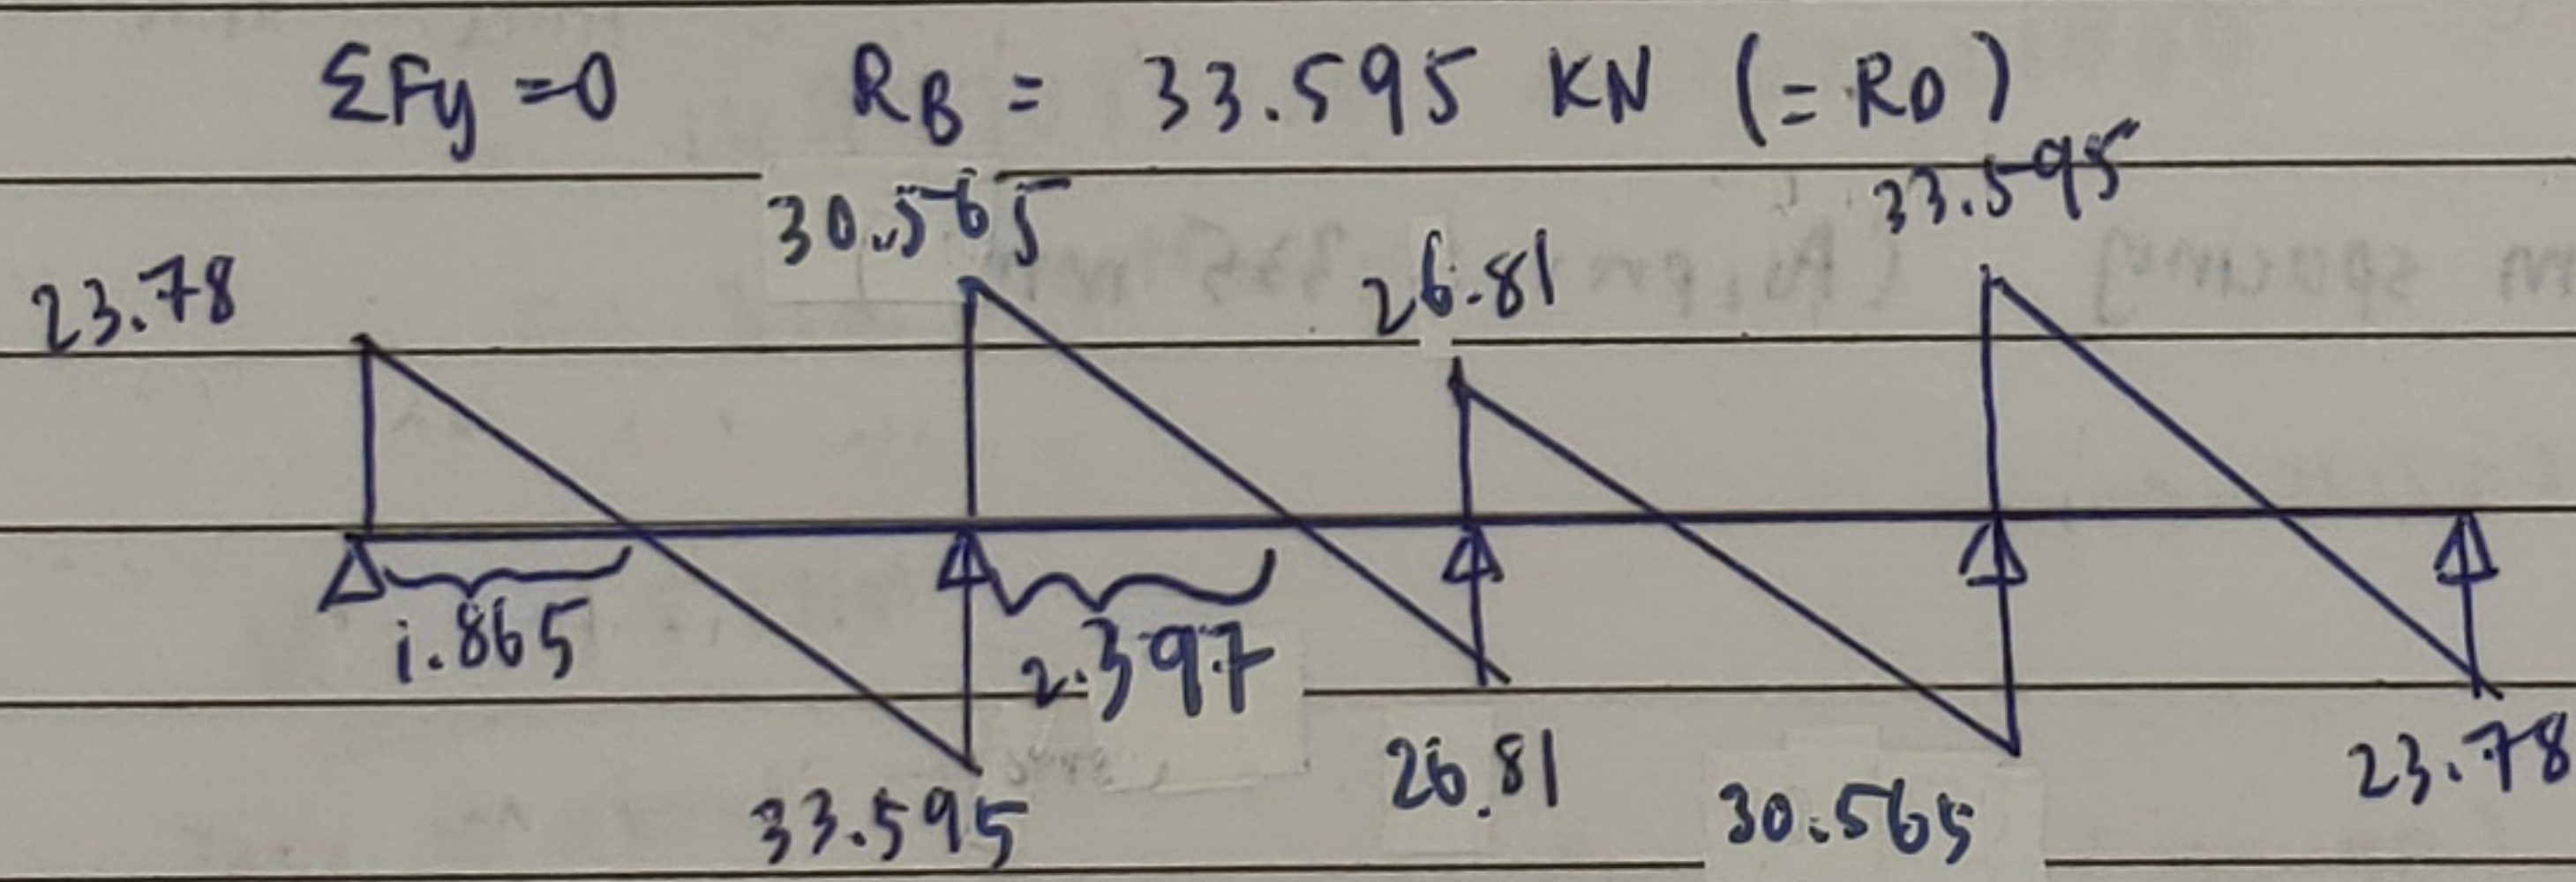 ΣFy =0 RB = 33.595 KN (= RD)
23.78
30.565
26.81
33.595
1.865
2.397
33.595
26.81
30.565
23.78